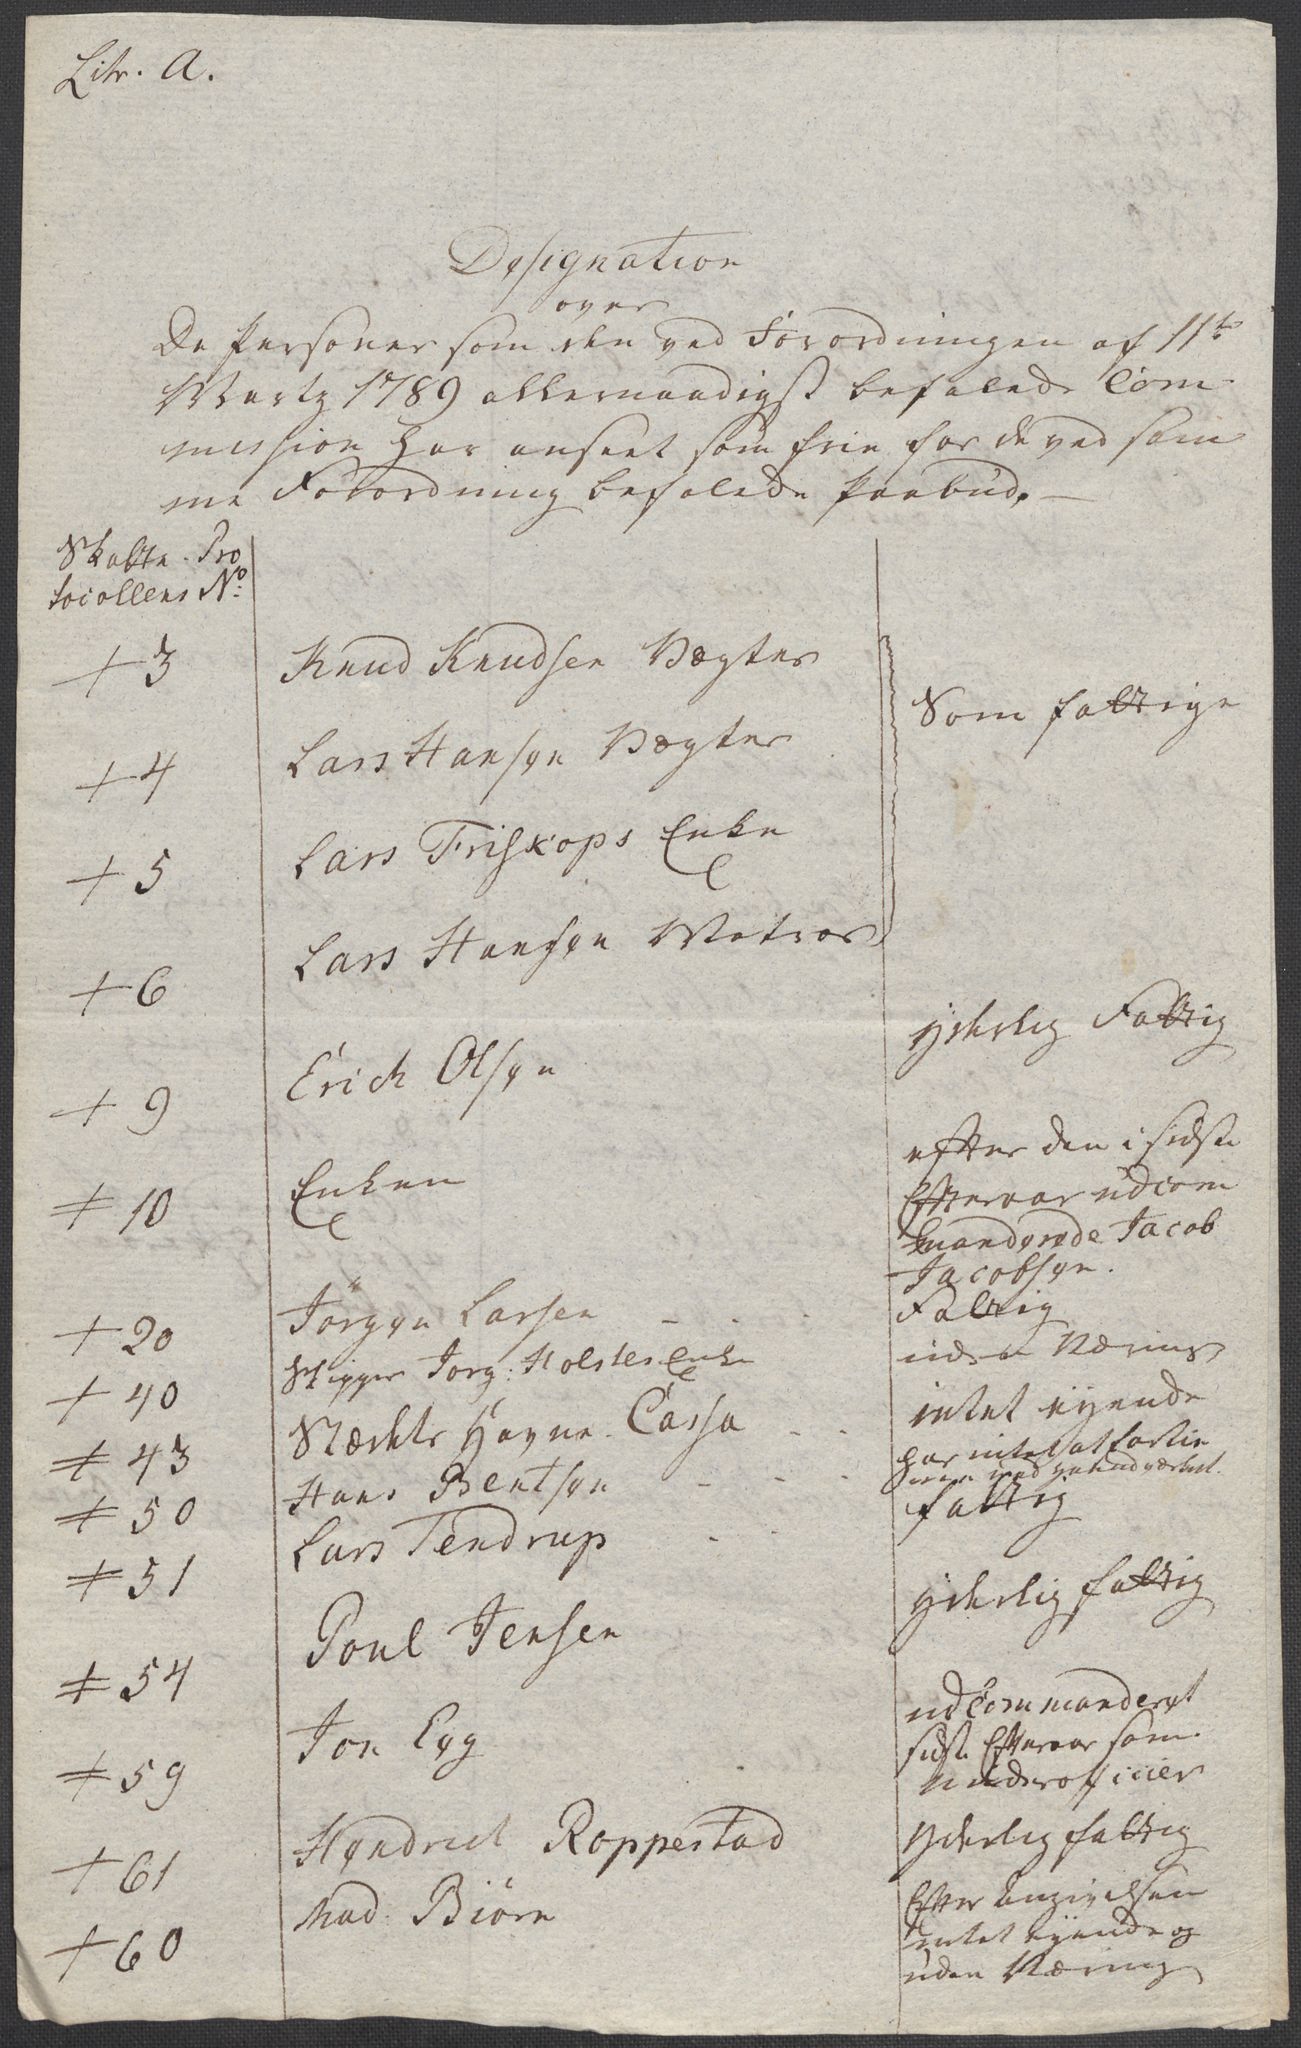 Litr. A.
Designation
over
De Personer som den ved Forordningen af 11te
Martz 1789 allernaadigst befalede Com
mission har anseet som frie for de ved sam
me Forordning befalede Paabud.
Skatte-Pro
tocollens No:
+ 3 Knud Knudsen Vægter
Som fattige
+ 4 Lars Hansen Vægter
+ 5 Lars Friskops Enke
+ 6 Lars Hansen Matros
+ 9 Erich Olsen yderlig Fattig
+ 10 Enken efter den i sidste
Efteraar udcom
manderede Jacob
Jacobsen.
+ 20 Jörgen Larsen - . . Fattig
+ 40 Skipper Jörg: Holsts Enke uden Næring
+ 43 Stærkts Hayne Casja - - intet eyende
+ 50 Hans Bentsen - - - har intet at fortie
ne ved
+ 51 Lars Tendrup - - fattig
+ 54 Poul Jensen yderlig fattig
+ 59 Jon Eeg udcommanderet
sidste Efteraar som
Underofficier
+ 61 Hendrich Roppestad yderlig fattig
+ 60 Mad: Biörn Efter Angivelsen
intet Eyende og
uden Næring